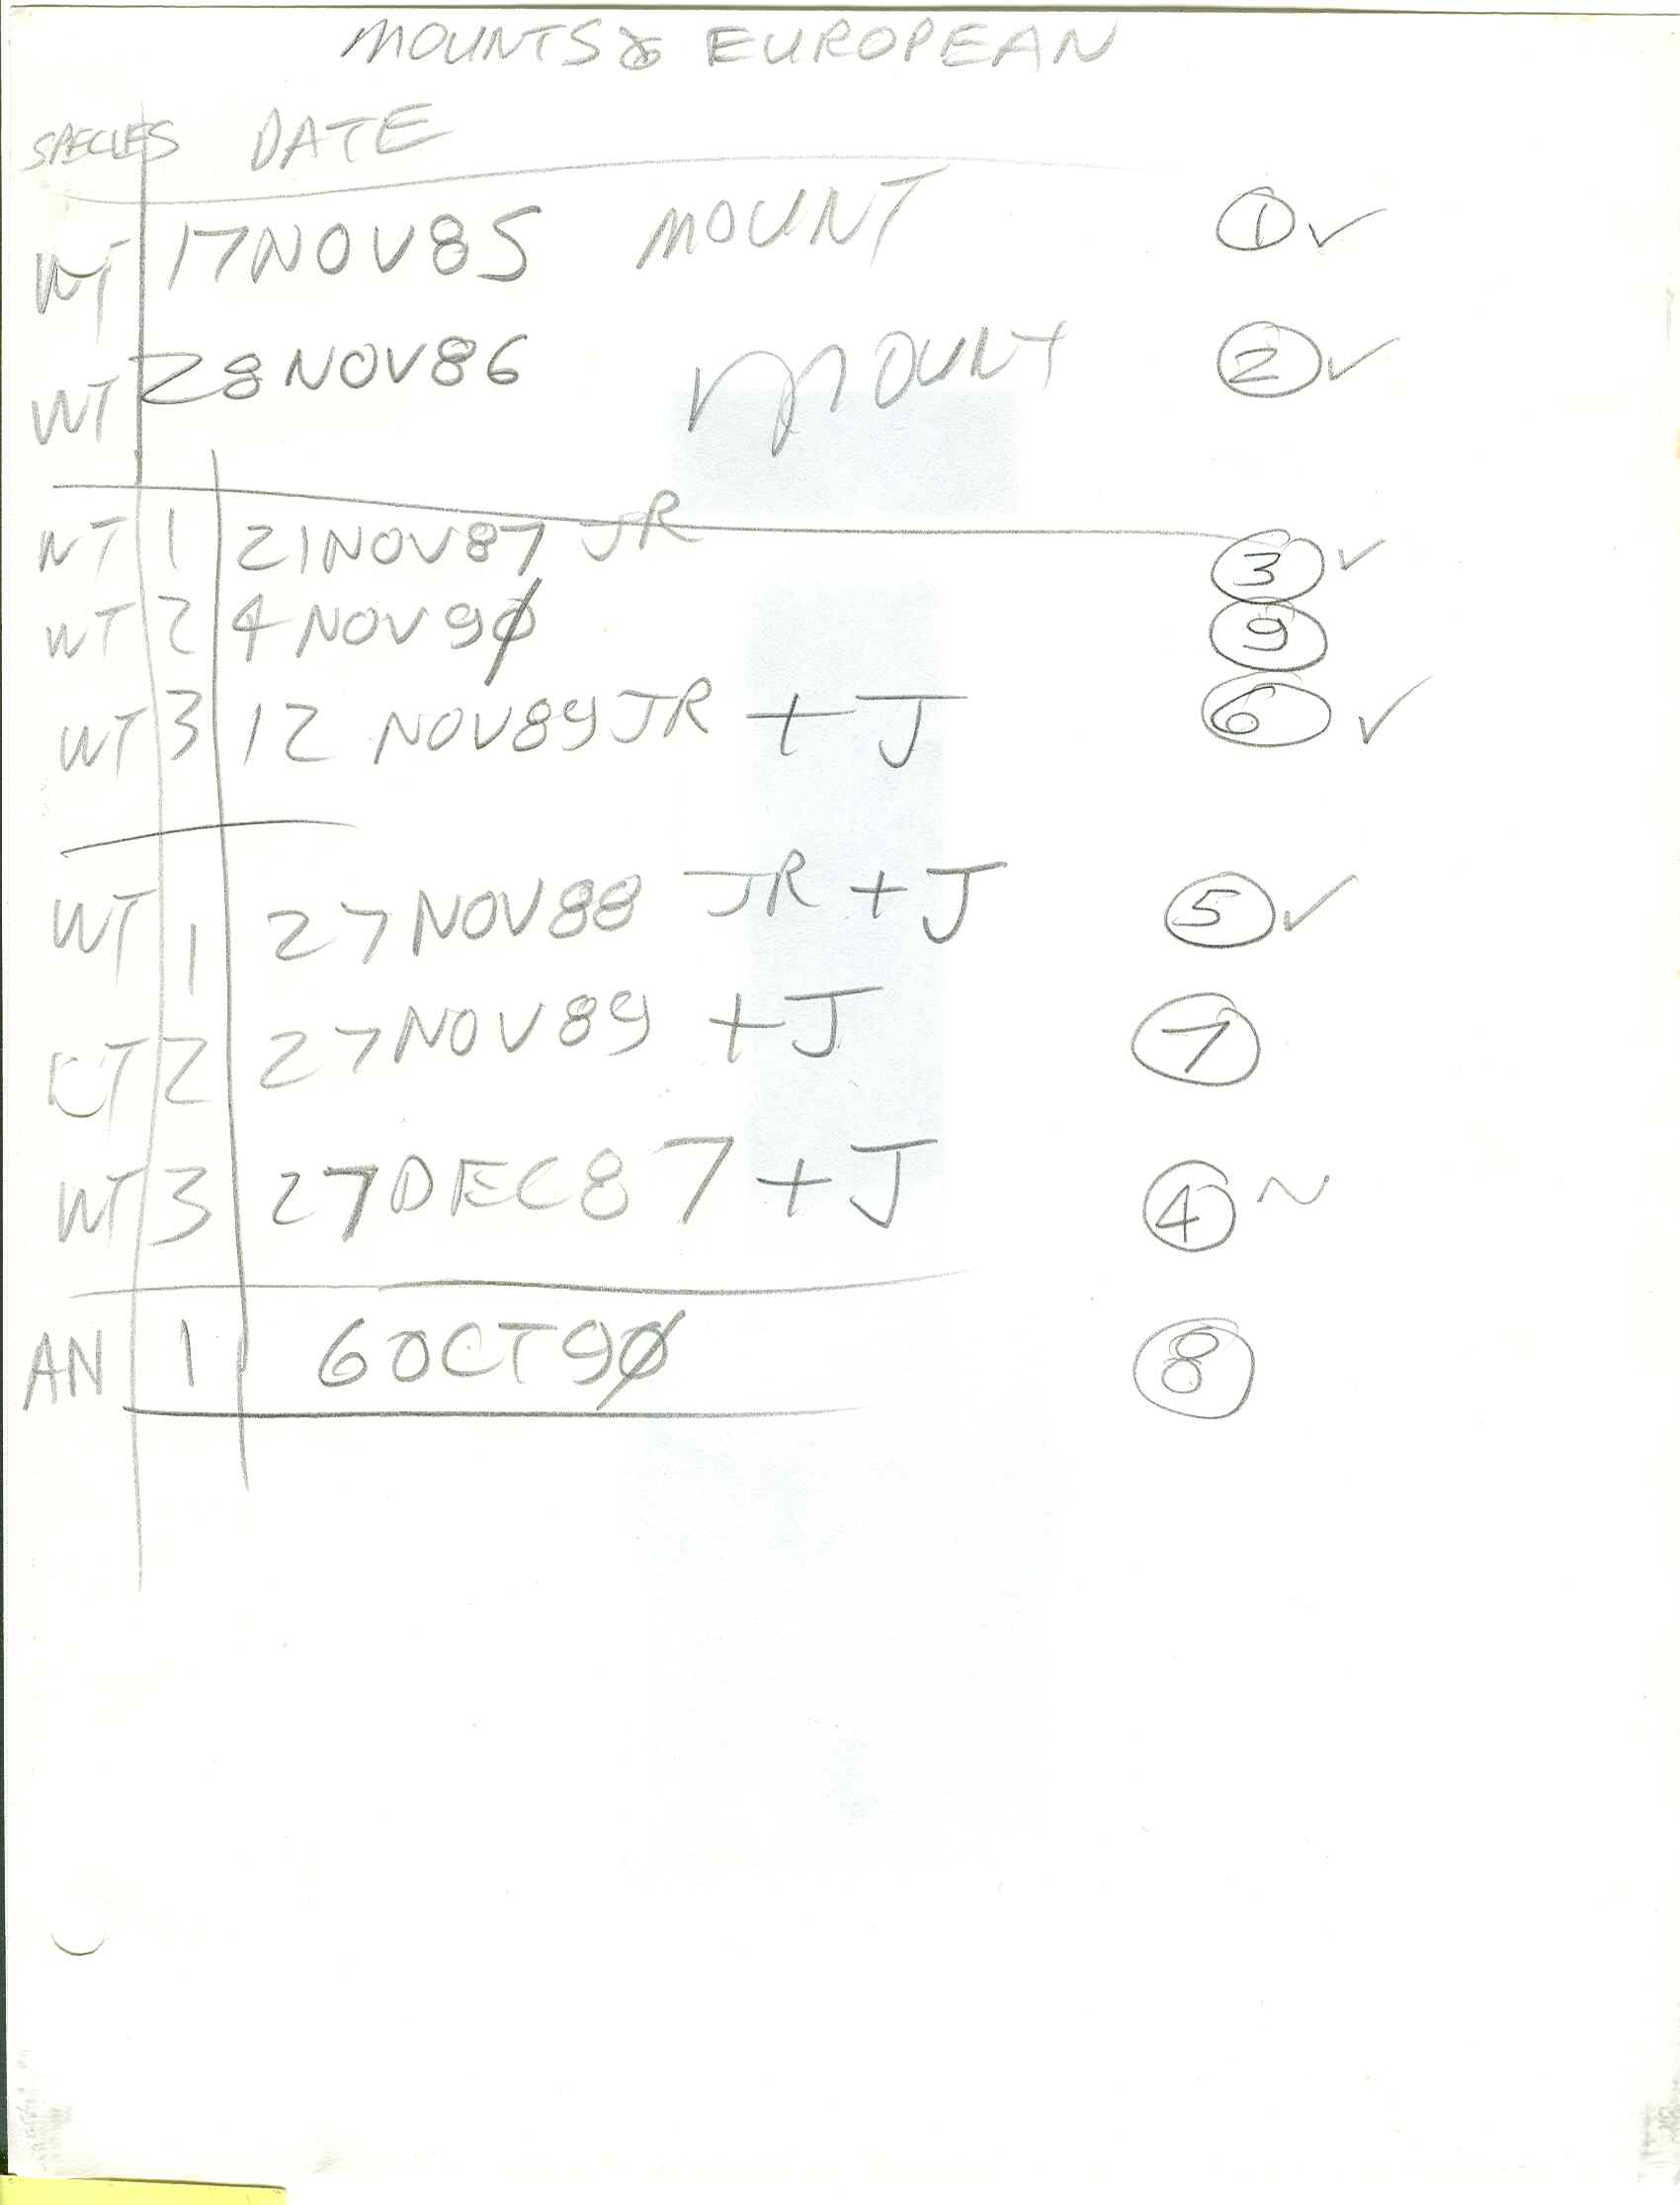 MOUNTS & EUROPEAN
SPECIES DATE
WT 17NOV85 MOUNT ① ✓
WT 28NOV86 MOUNT ② ✓
WT 1 21NOV87 JR ③ ✓
WT 2 4NOV9Ø ⑨
WT 3 12 NOV89 JR + J ⑥ ✓
WT 1 27NOV88 JR + J ⑤ ✓
WT 2 27NOV89 + J ⑦
WT 3 27DEC87 + J ④ ~
AN 1 6OCT9Ø ⑧